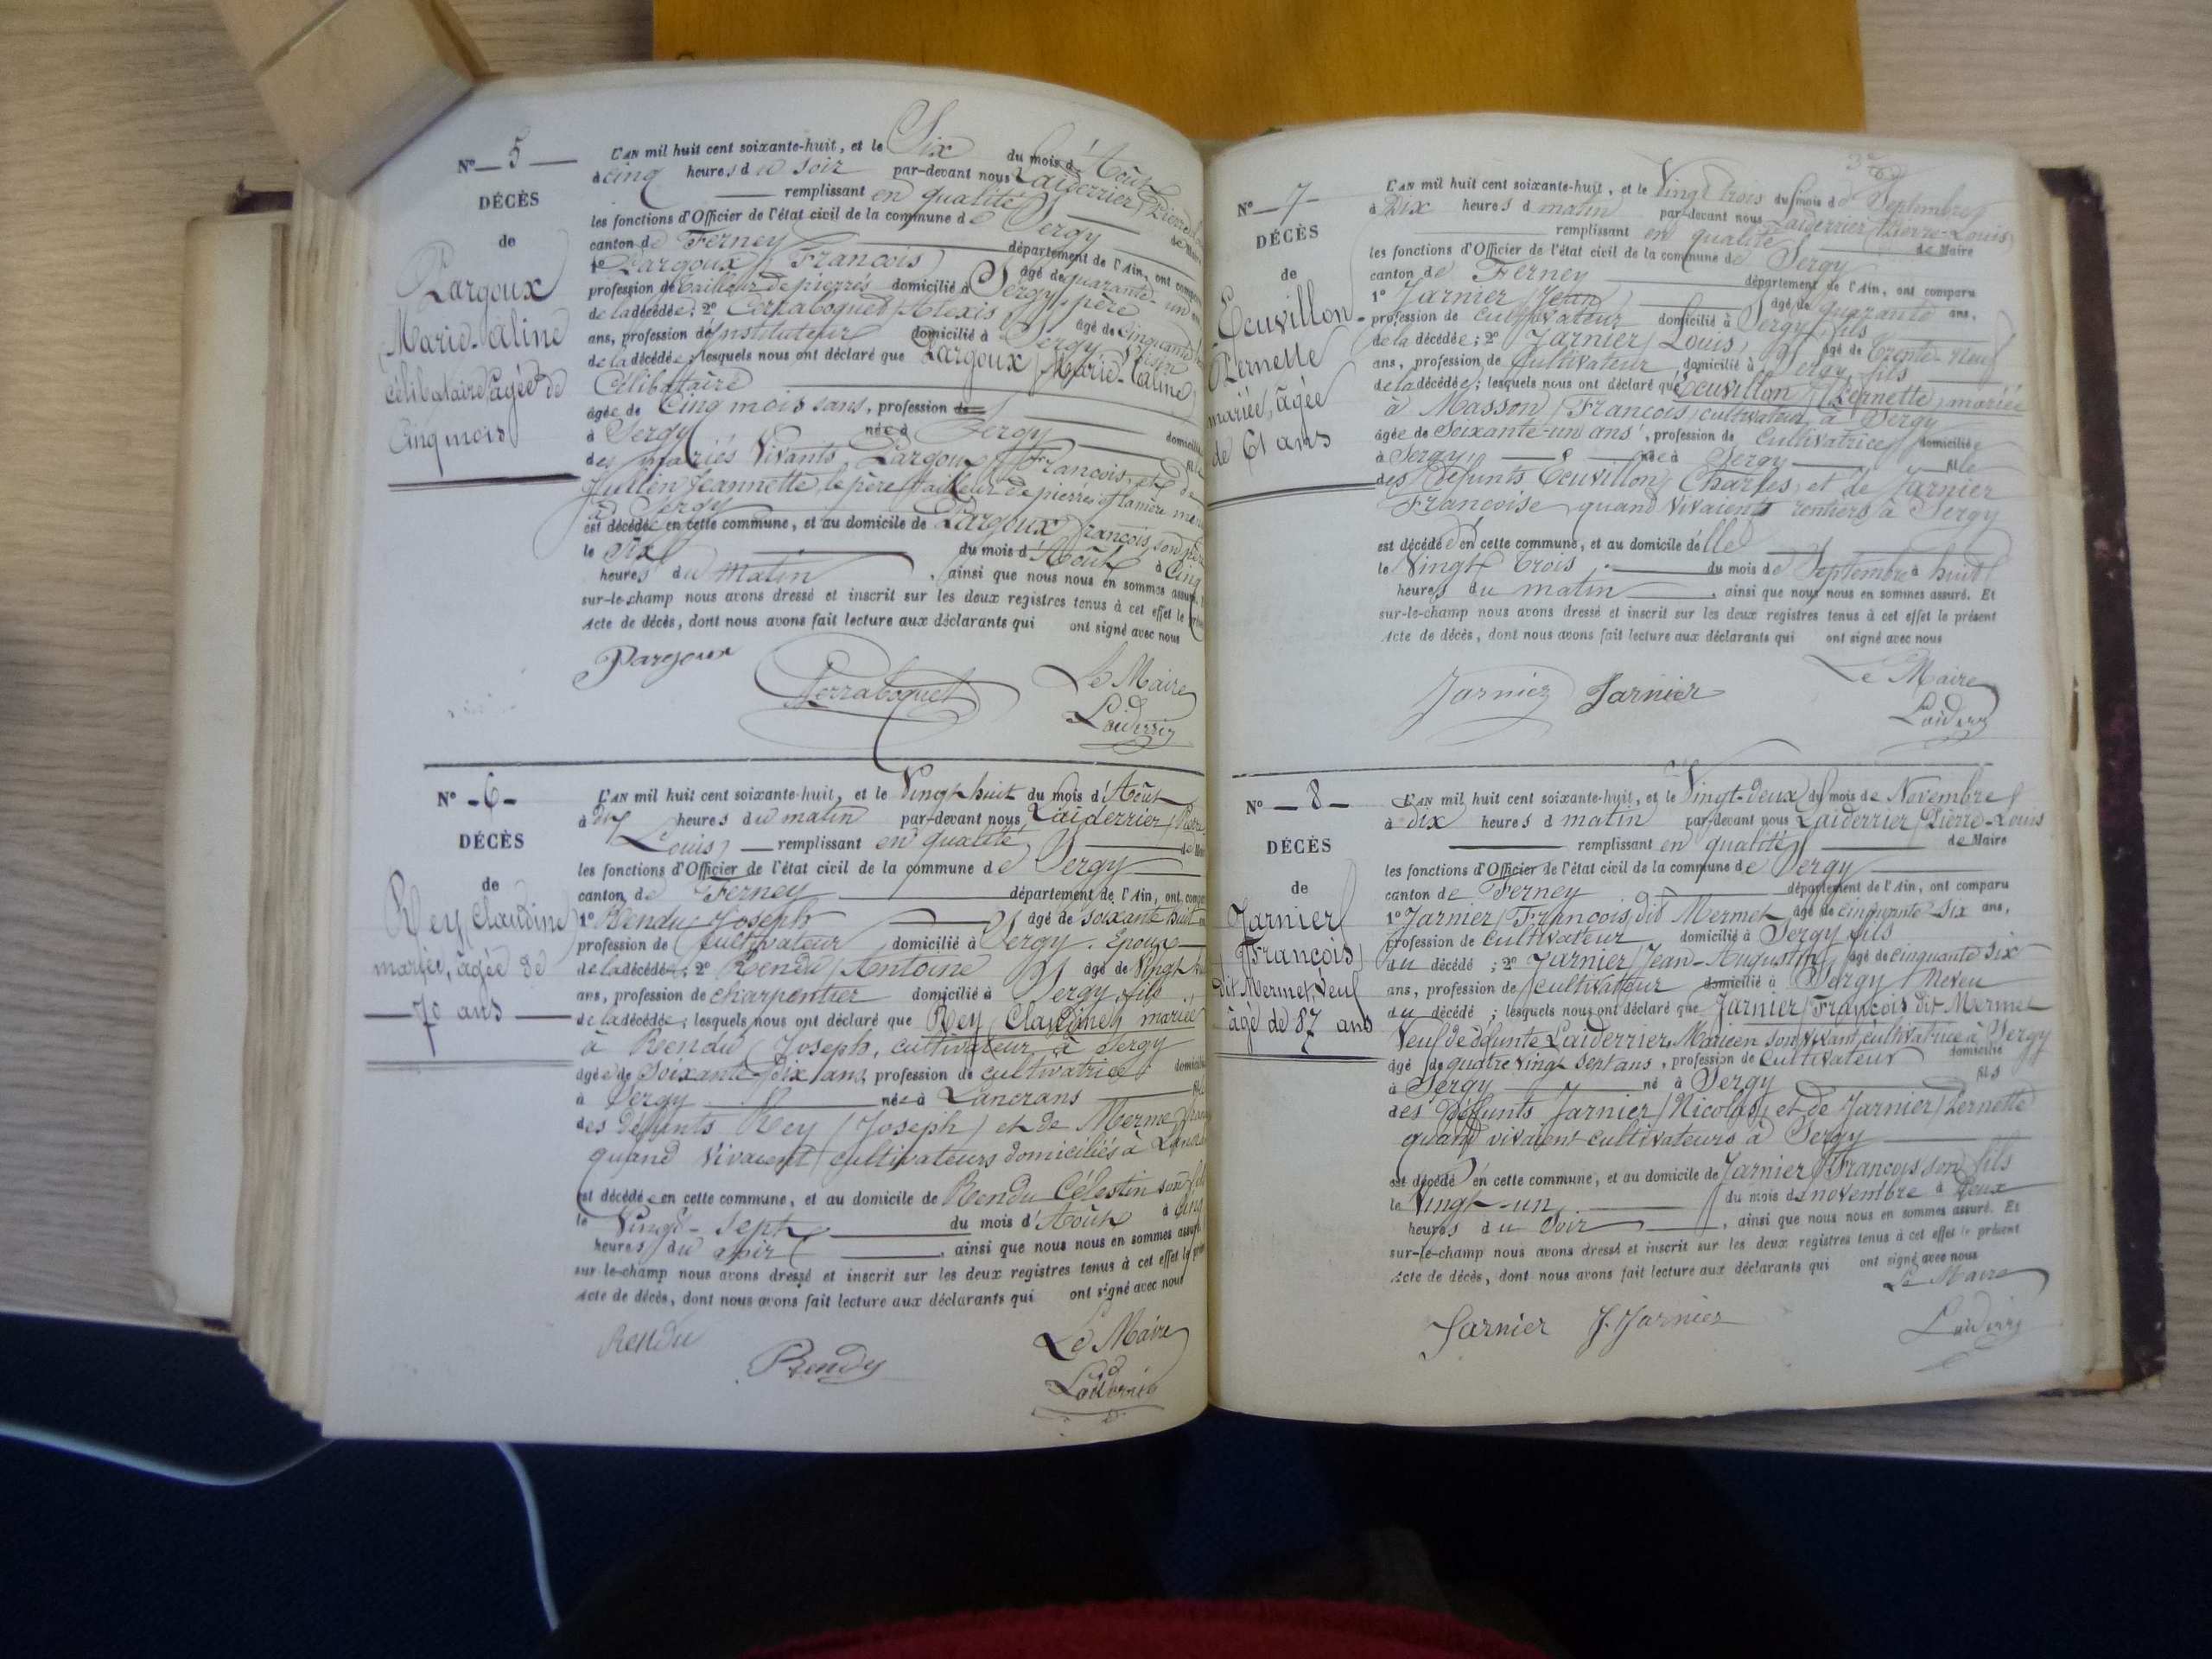 N° 5
DÉCÈS
de
Pargoux
Marie-Céline
célibataire, âgée de
Cinq mois
L'AN mil huit cent soixante-huit, et le Six du mois d'Août
à cinq heures du soir par-devant nous Laiderrier (Pierre
remplissant en qualité de Maire
les fonctions d'Officier de l'état civil de la commune de Sergy
canton de Ferney département de l'Ain, ont comparu
1° Pargoux (François) âgé de quarante-un ans
profession de tailleur de pierres domicilié à Sergy, père
de la décédée; 2° Perraboquet (Alexis) âgé de Cinquante
ans, profession d'Instituteur domicilié à Sergy, voisin
de la décédée; lesquels nous ont déclaré que Pargoux (Marie-Céline)
Célibataire
âgée de Cinq mois ans, profession de
à Sergy née à Sergy domiciliée
des mariés Vivants Pargoux (François) et de
Jullien Jeannette, le père tailleur de pierres et la mère
à Sergy
est décédée en cette commune, et au domicile de Pargoux François son père
le Six du mois d'Août à Cinq
heures du matin, ainsi que nous nous en sommes assuré. Et
sur-le-champ nous avons dressé et inscrit sur les deux registres tenus à cet effet le présent
Acte de décès, dont nous avons fait lecture aux déclarants qui ont signé avec nous
Pargoux Perraboquet Le Maire
Laiderrier
N° 6
DÉCÈS
de
Rey Claudine
mariée, âgée de
70 ans
L'AN mil huit cent soixante-huit, et le Vingt huit du mois d'Août
à dix heures du matin par-devant nous Laiderrier (Pierre
Louis) remplissant en qualité de Maire
les fonctions d'Officier de l'état civil de la commune de Sergy
canton de Ferney département de l'Ain, ont comparu
1° Rendu Joseph âgé de soixante huit ans
profession de cultivateur domicilié à Sergy. Epoux
de la décédée; 2° Rendu (Antoine âgé de Vingt
ans, profession de charpentier domicilié à Sergy, fils
de la décédée; lesquels nous ont déclaré que Rey (Claudine) mariée
à Rendu (Joseph, cultivateur à Sergy
âgée de Soixante-dix ans, profession de cultivatrice domiciliée
à Sergy née à Lancrans fille
des défunts Rey (Joseph) et de Merme
quand Vivaient cultivateurs domiciliés à Lancrans
est décédée en cette commune, et au domicile de Rendu Célestin son fils
le Vingt-Sept du mois d'Août à Cinq
heures du soir, ainsi que nous nous en sommes assuré
sur-le-champ nous avons dressé et inscrit sur les deux registres tenus à cet effet le présent
Acte de décès, dont nous avons fait lecture aux déclarants qui ont signé avec nous
Rendu Rendu Le Maire
Laiderrier
N° 7
DÉCÈS
de
Ecuvillon
Pernette
mariée, âgée
de 61 ans
L'AN mil huit cent soixante-huit, et le Vingt trois du mois de Septembre
à Dix heures d matin par-devant nous Laiderrier (Pierre-Louis)
remplissant en qualité de Maire
les fonctions d'Officier de l'état civil de la commune de Sergy
canton de Ferney département de l'Ain, ont comparu
1° Jarnier (Jean) âgé de quarante ans,
profession de cultivateur domicilié à Sergy, fils
de la décédée; 2° Jarnier (Louis) âgé de trente-neuf
ans, profession de Cultivateur domicilié à Sergy, fils
de la décédée; lesquels nous ont déclaré que Ecuvillon (Pernette) mariée
à Masson (François) cultivateur, à Sergy
âgée de Soixante-un ans, profession de Cultivatrice domiciliée
à Sergy, née à Sergy fille
des Défunts Ecuvillon Charles, et de Jarnier
Françoise, quand Vivaient rentiers à Sergy
est décédée en cette commune, et au domicile d'elle
le Vingt trois du mois de Septembre à huit
heures du matin, ainsi que nous nous en sommes assuré. Et
sur-le-champ nous avons dressé et inscrit sur les deux registres tenus à cet effet le présent
Acte de décès, dont nous avons fait lecture aux déclarants qui ont signé avec nous
Jarnier Jarnier Le Maire
Laiderrier
N° 8
DÉCÈS
de
Jarnier
(François)
dit Mermet, Veuf
âgé de 87 ans
L'AN mil huit cent soixante-huit, et le Vingt-deux du mois de Novembre
à dix heures d matin par-devant nous Laiderrier (Pierre-Louis
remplissant en qualité de Maire
les fonctions d'Officier de l'état civil de la commune de Sergy
canton de Ferney département de l'Ain, ont comparu
1° Jarnier (François) dit Mermet âgé de cinquante-six ans,
profession de cultivateur domicilié à Sergy fils
du décédé; 2° Jarnier (Jean-Augustin) âgé de cinquante six
ans, profession de cultivateur domicilié à Sergy Neveu
du décédé; lesquels nous ont déclaré que Jarnier (François) dit Mermet
Veuf de défunte Laiderrier, en son vivant, cultivatrice à Sergy
âgé de quatre vingt sept ans, profession de Cultivateur domicilié
à Sergy né à Sergy fils
des Défunts Jarnier (Nicolas) et de Jarnier (Pernette
quand vivaient cultivateurs à Sergy
est décédé en cette commune, et au domicile de Jarnier (François son fils
le Vingt-un du mois de novembre à Deux
heures du Soir, ainsi que nous nous en sommes assuré. Et
sur-le-champ nous avons dressé et inscrit sur les deux registres tenus à cet effet le présent
Acte de décès, dont nous avons fait lecture aux déclarants qui ont signé avec nous
Le Maire
Jarnier J. Jarnier Laiderrier